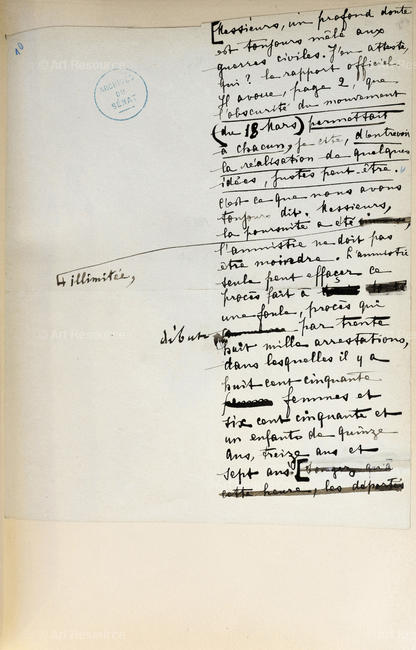 10
ARCHIVES
DU
SÉNAT
[Messieurs, un profond doute
est toujours mêlé aux
guerres civiles. J'en atteste,
qui? le rapport officiel.
Il avoue, page 2, que
l'obscurité du mouvement
(du 18 Mars) permettait
à chacun, je cite, d'entrevoir
la réalisation de quelques
idées, justes peut-être.
C'est ce que nous avons
toujours dit. Messieurs,
la poursuite a été
illimitée,
l'amnistie ne doit pas
être moindre. L'amnistie
seule peut effacer ce
procès fait à
une foule, procès qui
débute par trente
huit mille arrestations,
dans lesquelles il y a
huit cent cinquante
femmes et
six cent cinquante et
un enfants de quinze
ans, treize ans et
sept ans. [Songez qu'à
cette heure, les députés
© Art Resource
© Art Resource
© Art Resource
© Art Resource